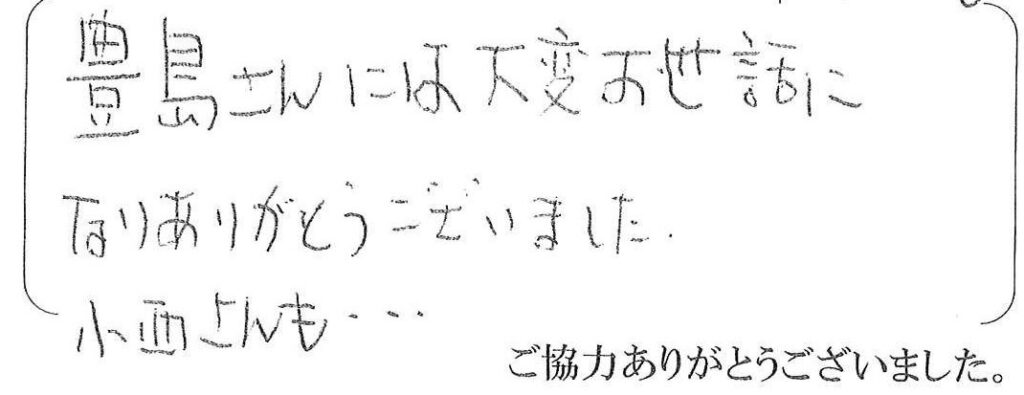 豊島さんには大変お世話に
なりありがとうございました.
小西さんも・・・
ご協力ありがとうございました。